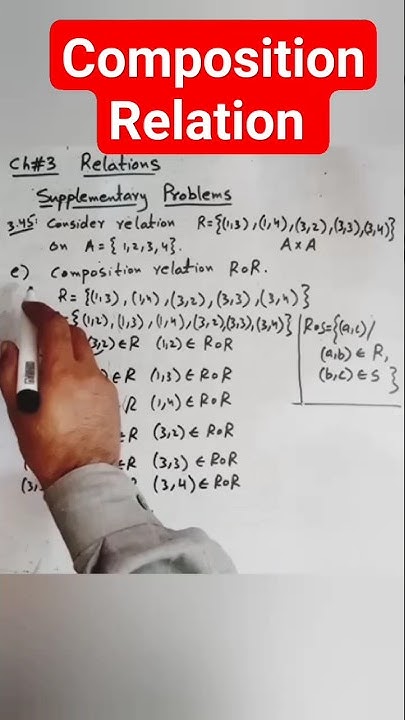 Composition
Relation
Ch#3 Relations
Supplementary Problems
3.45: Consider relation R={(1,3),(1,4),(3,2),(3,3),(3,4)}
on A={1,2,3,4}. A×A
e) Composition relation R∘R.
R={(1,3),(1,4),(3,2),(3,3),(3,4)}
={(1,2),(1,3),(1,4),(3,2),(3,3),(3,4)}
R∘S={(a,c)/
(a,b)∈R,
(b,c)∈S}
(3,2)∈R (1,2)∈R∘R
∈R (1,3)∈R∘R
∈R (1,4)∈R∘R
∈R (3,2)∈R∘R
∈R (3,3)∈R∘R
(3, (3,4)∈R∘R